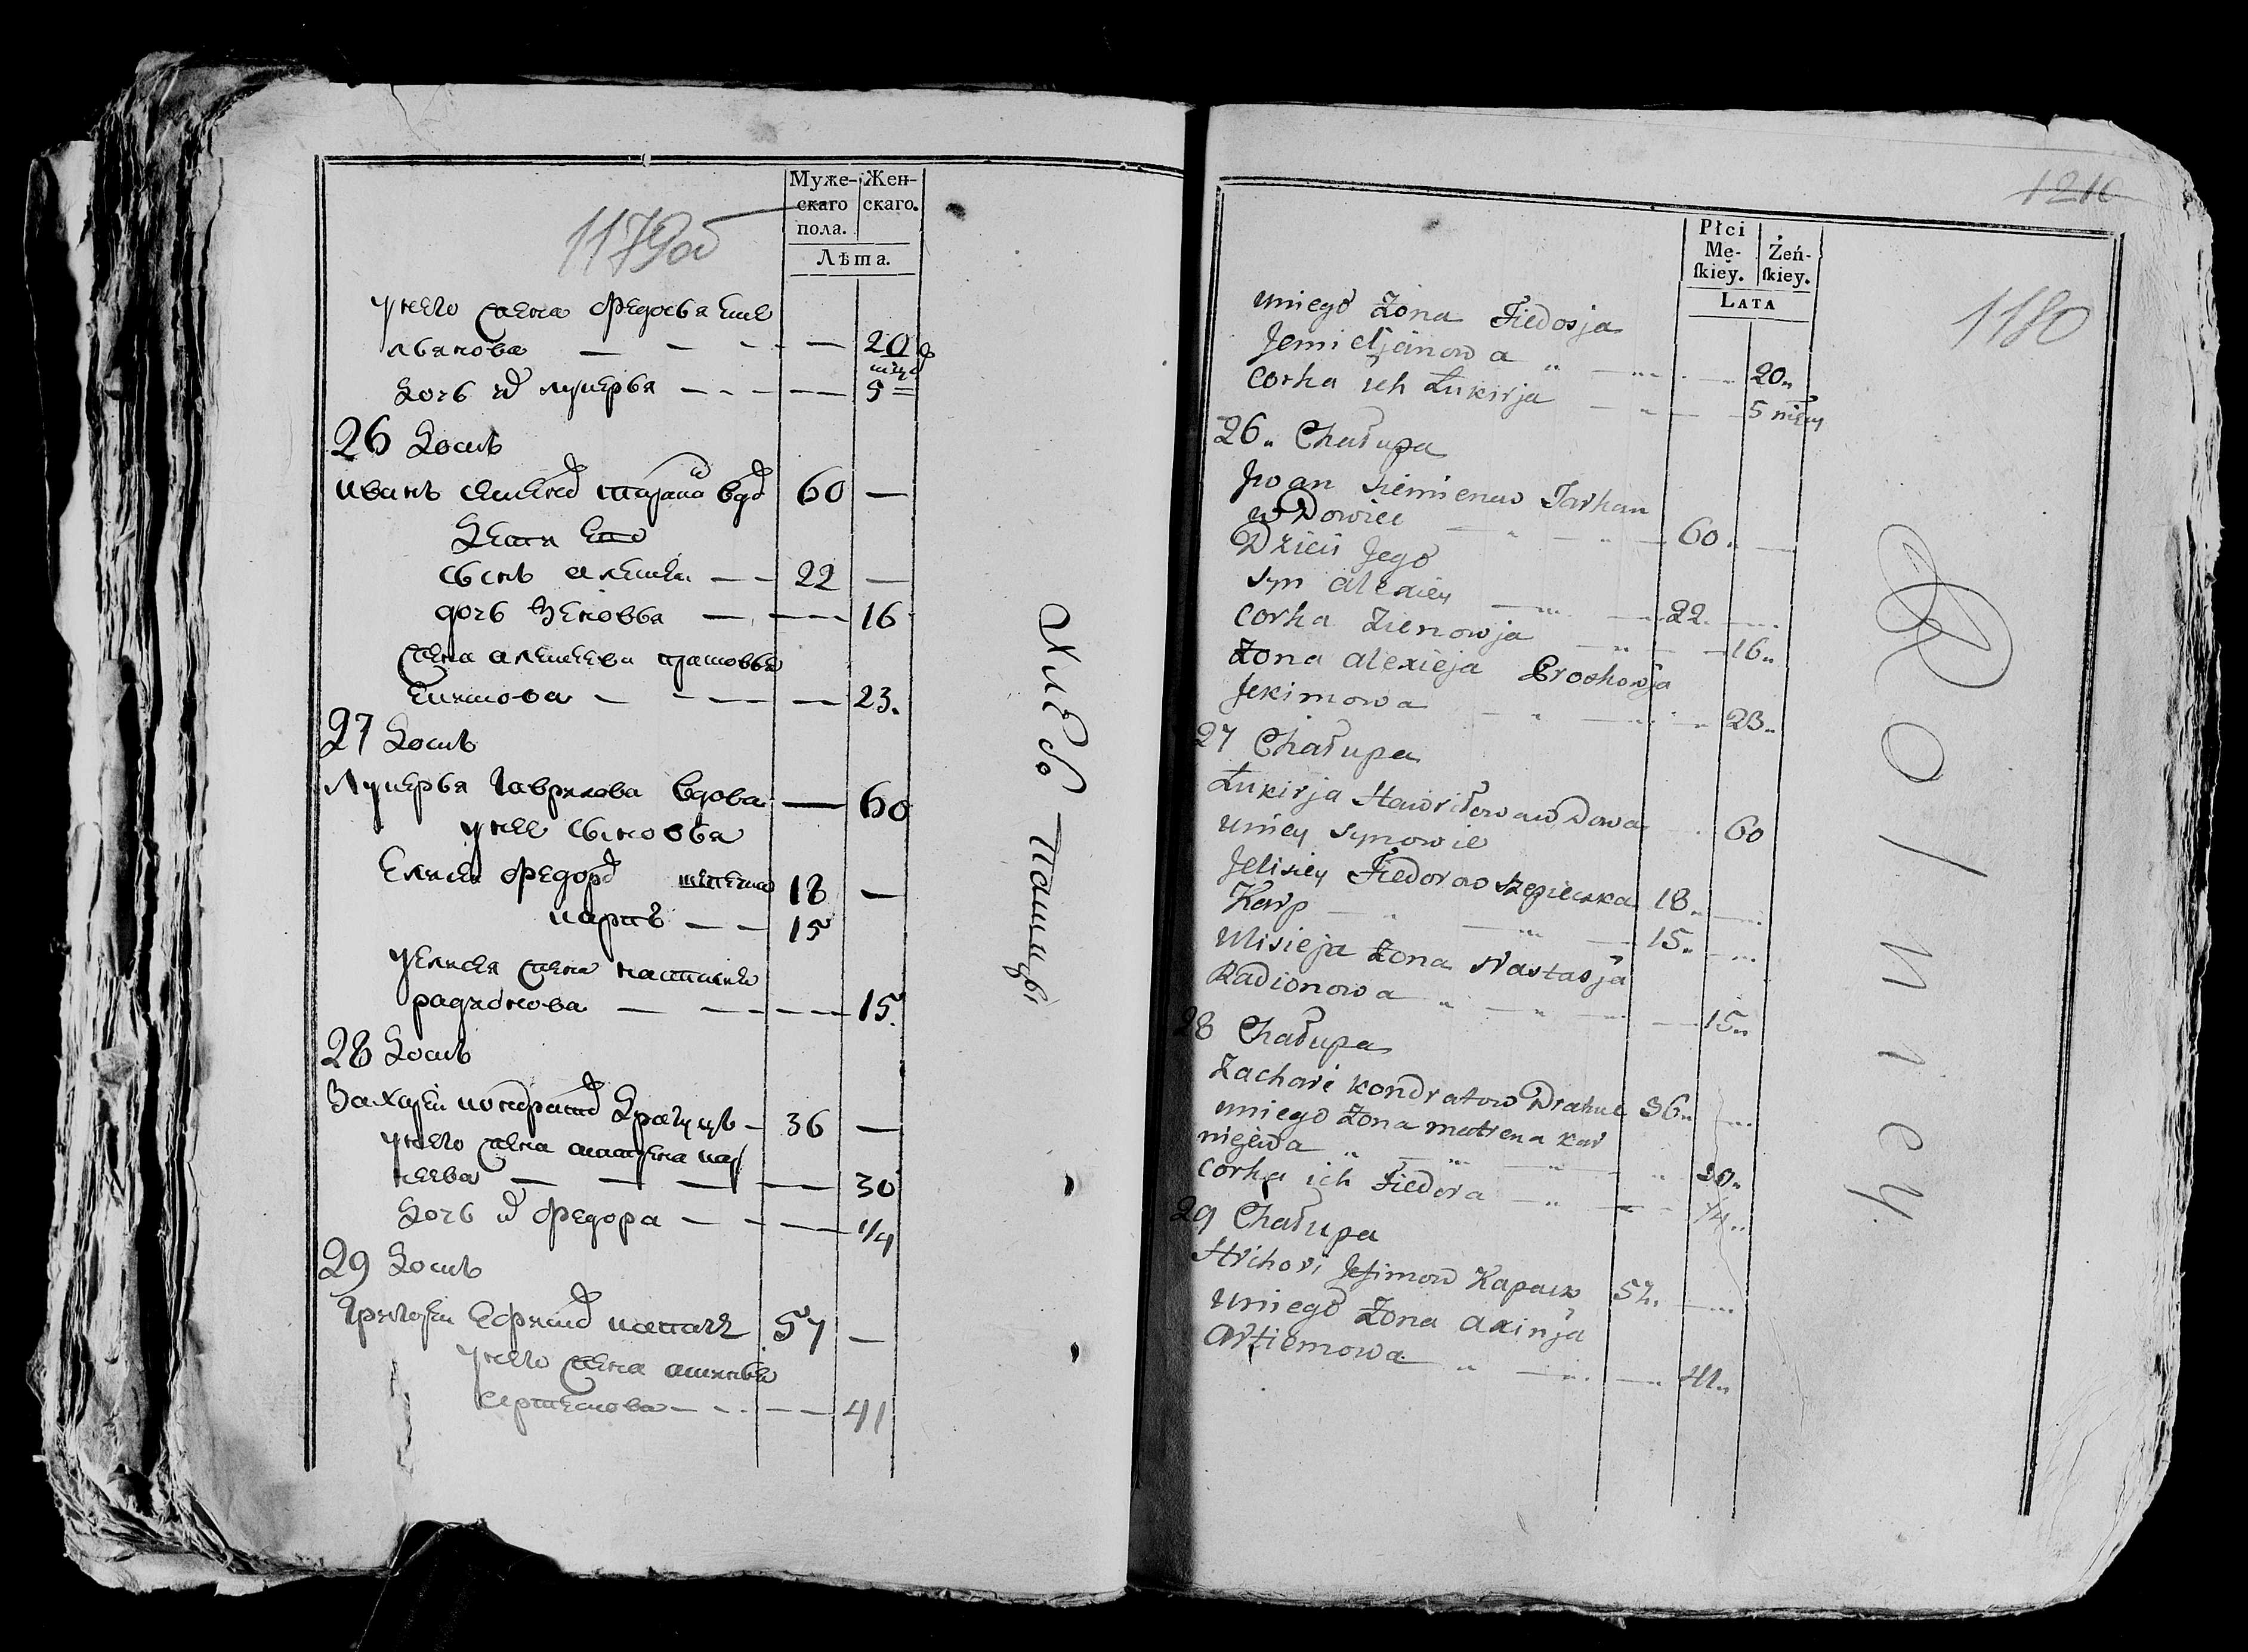 1179об
Муже-
скаго
пола.
Жен-
скаго.
Лѣта.
у него жена Федосья Еме
льянова — — — — 20
дочь их Лукерья — — — — 5
26 Домъ
Иванъ Семенов вдов 60 —
Дети Его
сынъ Алексей — — 22 —
дочь Зеновья — — — 16
жена Алексеева
Екимова — — — — 23.
27 Домъ
Лукерья Гаврилова вдова — 60
у нее сыновья
Елисей Федоров 18 —
Карпъ — — 15
у Елисея жена Настасья
Радионова — — — — 15.
28 Домъ
Захарей Кондратов 36 —
у него жена Матрена Кор
неева — — — — 30
дочь их Федора — — — 1/4
29 Домъ
Григорей Ефимов 57 —
у него жена Аксинья
Артемова — — — — 41
Хлебо Пашцы
1210
1180
Płci
Mę-
ſkiey.
Żeń-
ſkiey.
LATA
uniego Żona Fiedosja
Jemieljanowa 20„
Corka ich Łukirja 5
26„ Chałupa
Jwan Siemienow Tarhan
wDowiec 60„
Dzieci Jego
Syn Alexiey 22„
Corka Zienowja 16„
Żona Alexieja Proskowja
Jekimowa 23„
27 Chałupa
Łukirja Hawriłowa wDowa 60
uniey Synowie
Jelisiey Fiedorow 18„
Karp 15„
Ulisieja Żona Nastasja
Radionowa 15„
28 Chałupa
Zachari Kondratow 36„
uniego Żona Matrena Kar
niejewa 30„
Corka ich Fiedora 1/4„
29 Chałupa
Hrihori Jefimow 57„
uniego Żona Axinja
Artiemowa 41„
Rolnicy